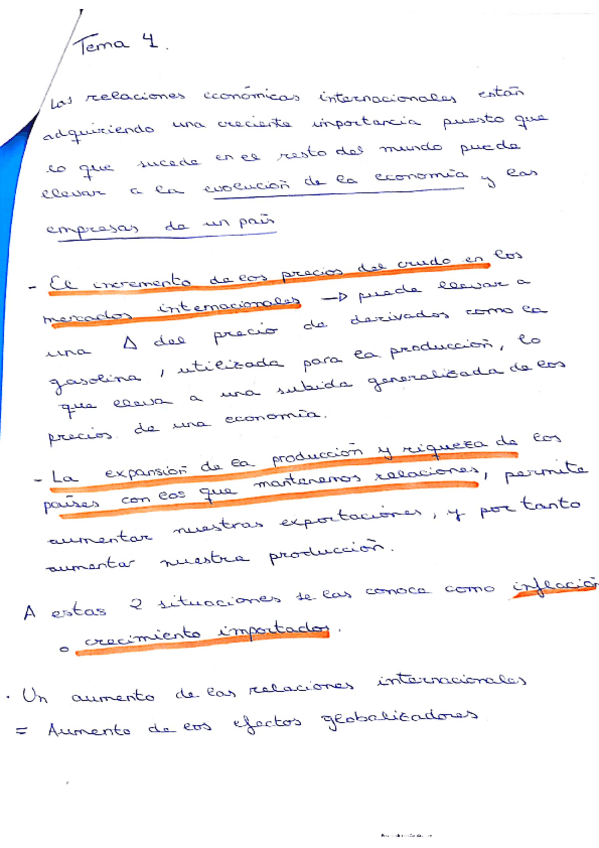 Tema 4.
Las relaciones económicas internacionales están
adquiriendo una creciente importancia puesto que
lo que sucede en el resto del mundo puede
llevar a la evolución de la economía y las
empresas de un país
- El incremento de los precios del crudo en los
mercados internacionales → puede llevar a
una Δ del precio de derivados como la
gasolina, utilizada para la producción, lo
que lleva a una subida generalizada de los
precios de una economía.
- La expansión de la producción y riqueza de los
países con los que mantenemos relaciones, permite
aumentar nuestras exportaciones, y por tanto
aumentar nuestra producción.
A estas 2 situaciones se las conoce como inflación
o crecimiento importados.
· Un aumento de las relaciones internacionales
= Aumento de los efectos globalizadores